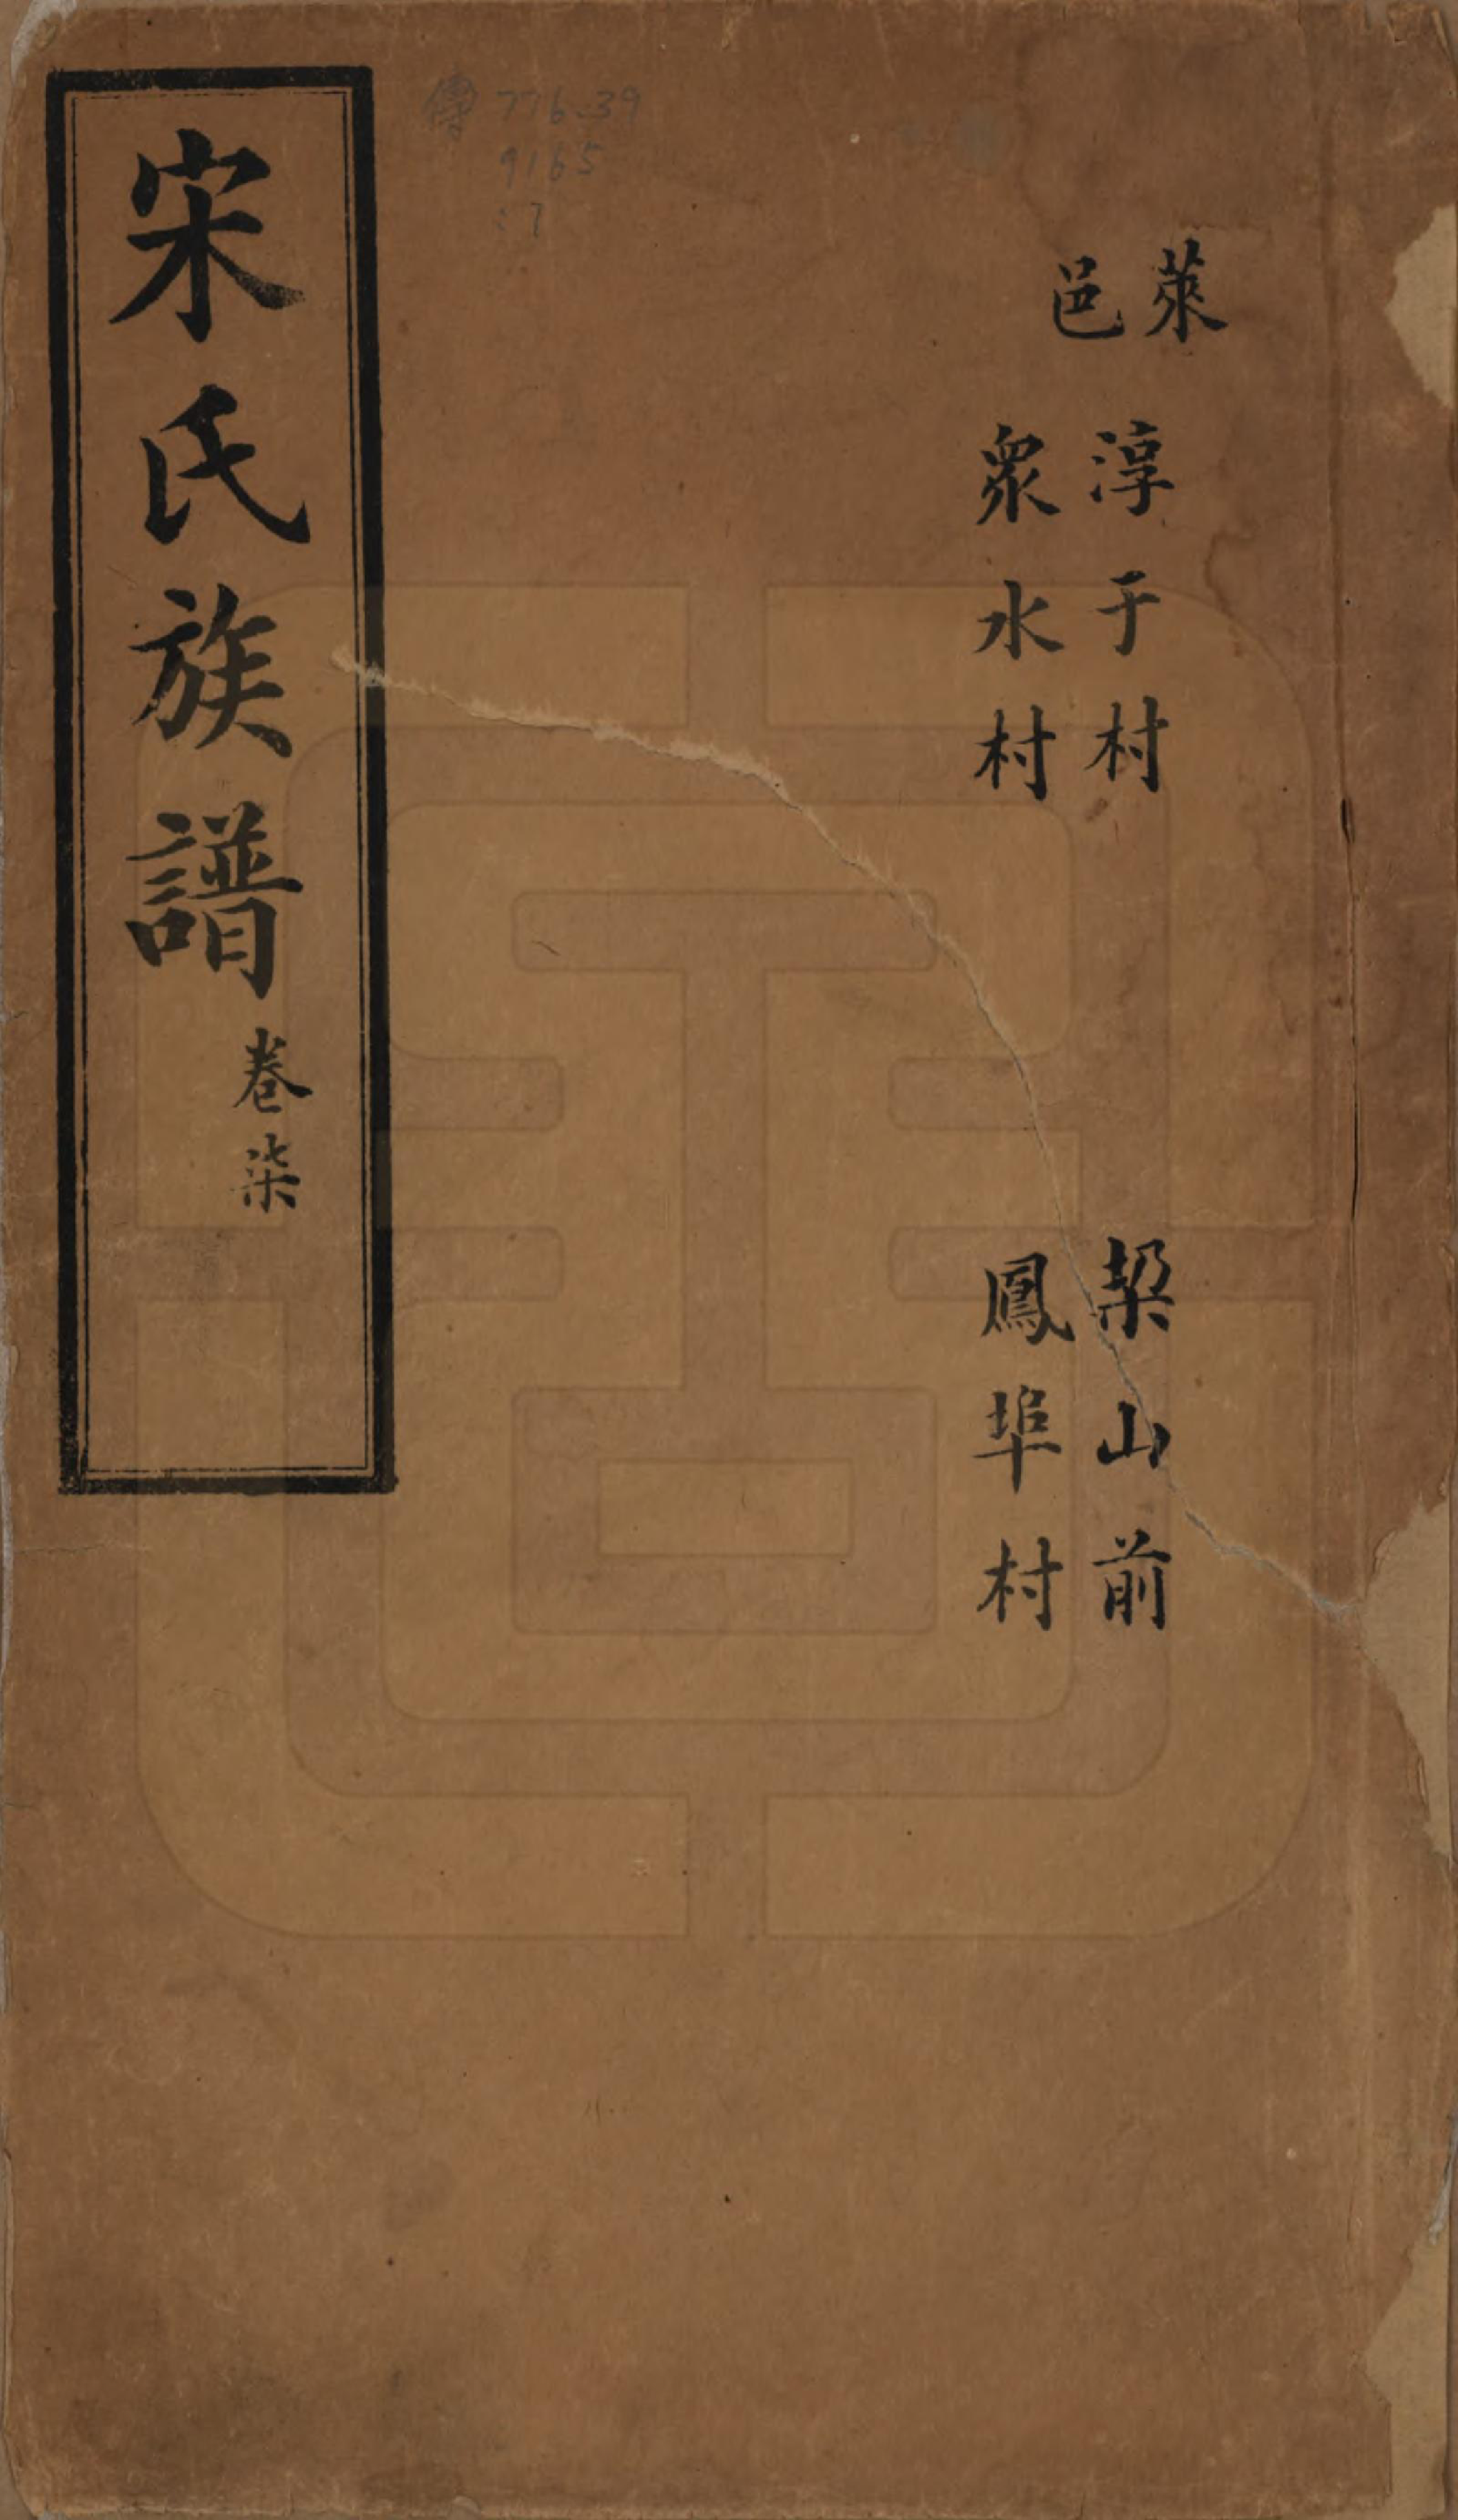 萊邑
淳于村
眾水村
梨山前
鳳埠村
宋氏族譜 卷柒
傳 776.39
9165
:7